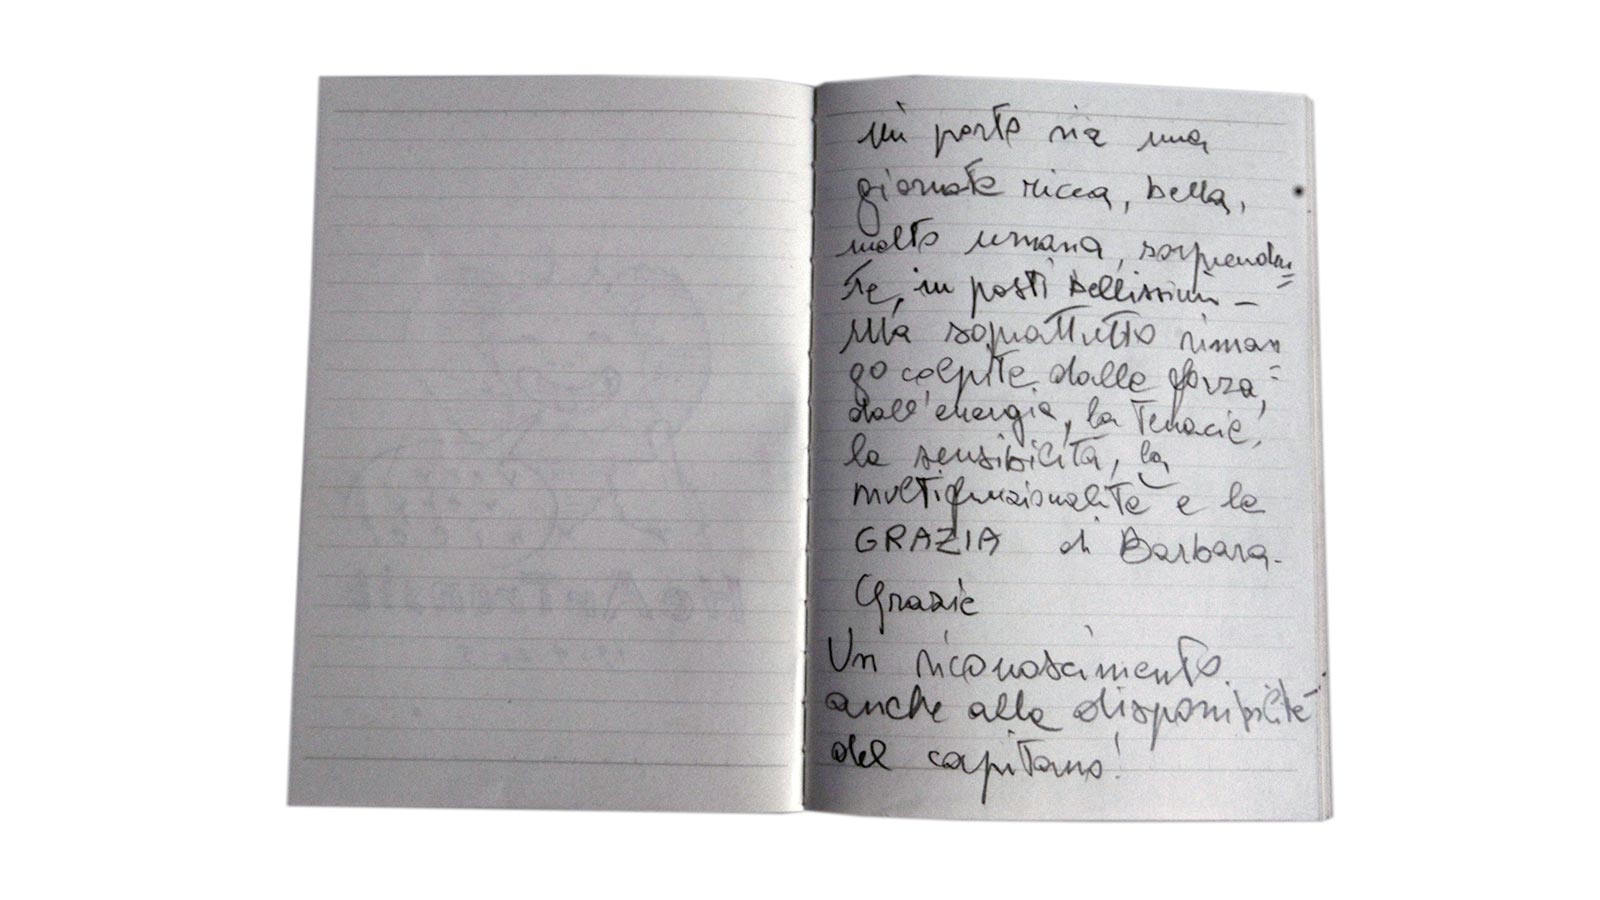 Mi porto via una
giornata ricca, bella,
molto umana, sorprenden=
te, in posti bellissimi -
Ma soprattutto riman=
go colpita dalla forza,
dall'energia, la tenacia,
la sensibilità, la
multifunzionalità e la
GRAZIA di Barbara-
Grazie
Un riconoscimento
anche alla disponibilità
del capitano!